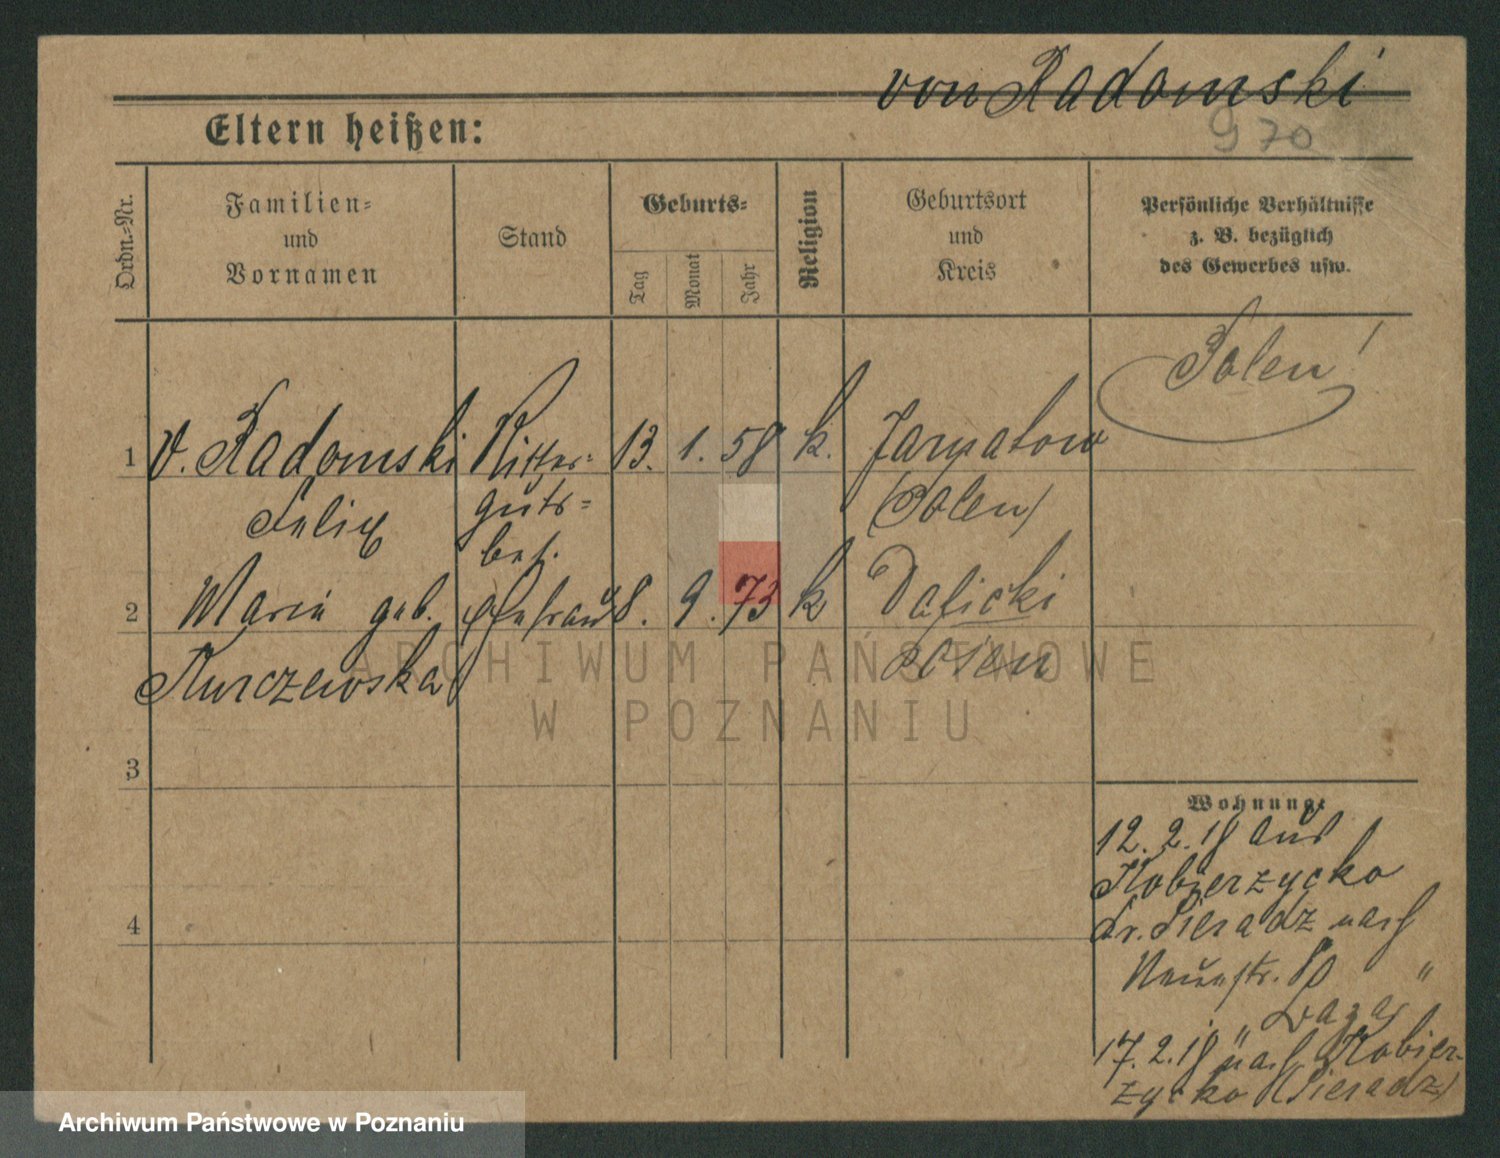 von Radomski
970
Eltern heißen:
Ordn.-Nr.
Familien-
und
Vornamen
Stand
Geburts-
Tag
Monat
Jahr
Religion
Geburtsort
und
Kreis
Persönliche Verhältnisse
z. B. bezüglich
des Gewerbes usw.
Polen!
1 v. Radomski Ritter- 13. 1. 58 k.
Felix guts- (Polen)
bes.
2 Maria geb. Ehefrau 8. 9. 73 k
Kurczewska Posen
3
4
Wohnung:
12. 2. 18 aus
Kobierzycko
Kr. Sieradz nach
Neuestr.
17. 2. 18 nach Kobier-
zycko (Sieradz)
ARCHIWUM PAŃSTWOWE
W POZNANIU
Archiwum Państwowe w Poznaniu